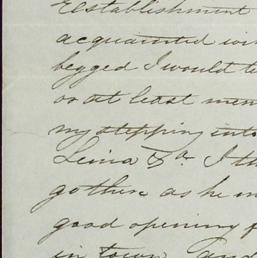 establishment
acquainted
begged I would
or at least
my stepping into
Lima & I
go there as he
good opening
in town and